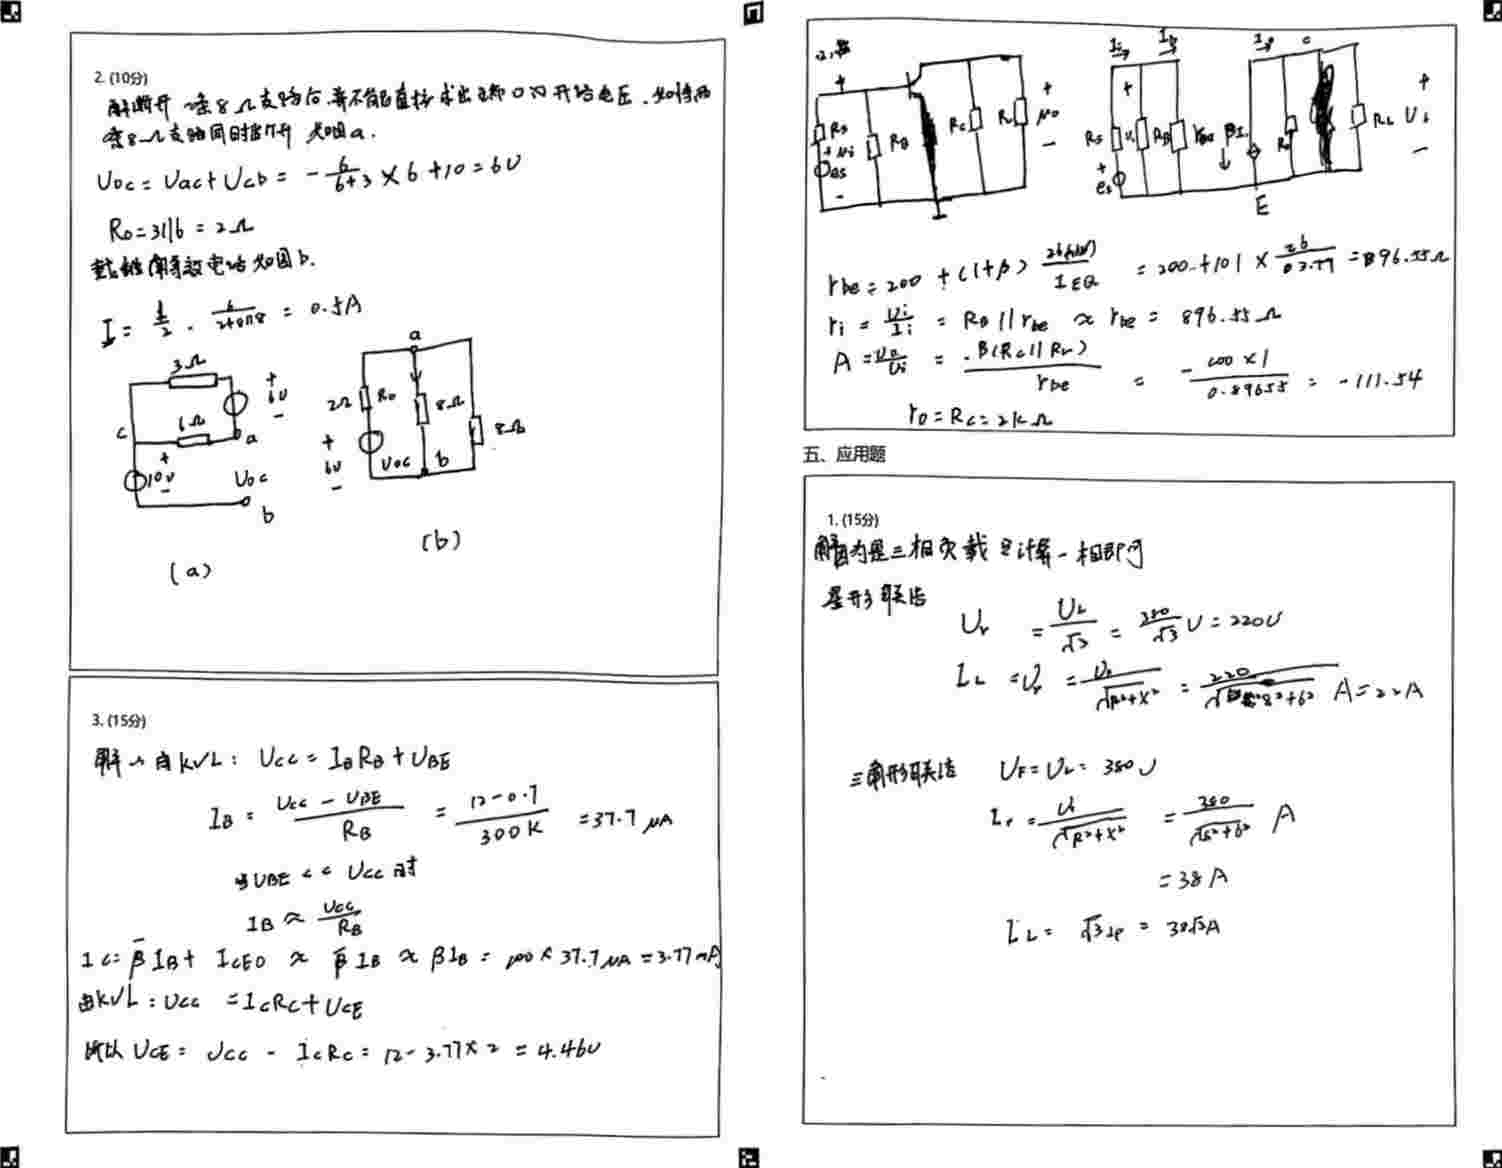 2. (10分)
解断开一条8Ω支路后,并不能直接求出端口的开路电压,如将两
条8Ω支路同时断开 如图a.
Uoc = Uac + Ucb = - 6/(6+3) × 6 + 10 = 6V
Ro = 3∥6 = 2Ω
等效电路如图b.
I = 1/2 · 6/(2+8∥8) = 0.5A
3Ω
+
6V
-
6Ω
c
a
+
10V
-
Uoc
b
(a)
a
2Ω Ro
8Ω
8Ω
+
6V
-
Uoc
b
(b)
3. (15分)
解 由KVL: Ucc = IB RB + UBE
IB = (Ucc - UBE)/RB = (12-0.7)/300K = 37.7 μA
当UBE << Ucc时
IB ≈ Ucc/RB
Ic = β̄ IB + ICEO ≈ β̄ IB ≈ βIB = 100 × 37.7 μA = 3.77 mA
由KVL: Ucc = IcRc + UCE
所以 UCE = Ucc - IcRc = 12 - 3.77 × 2 = 4.46V
+
Rs
+ ui
es
-
RB
Rc
RL
+
uo
-
Ii
IB
Rs
+
es
RB
rbe
βI
c
RL
+
-
E
rbe = 200 + (1+β) 26(mV)/IEQ = 200 + 101 × 26/3.77 = 896.55Ω
ri = Ui/Ii = RB∥rbe ≈ rbe = 896.55Ω
A = Uo/Ui = -β(Rc∥RL)/rbe = - 100×1/0.89655 = -111.54
ro = Rc = 2kΩ
五、应用题
1. (15分)
解因为是三相负载只计算一相即可
星形联结
= UL/√3 = 380/√3 V = 220V
IL = = /√(R²+X²) = 220/√(8²+6²) A = 22A
三角形联结 UF = UL = 380V
= /√(R²+X²) = 380/√(8²+6²) A
= 38A
IL = √3 Ip = 38√3A